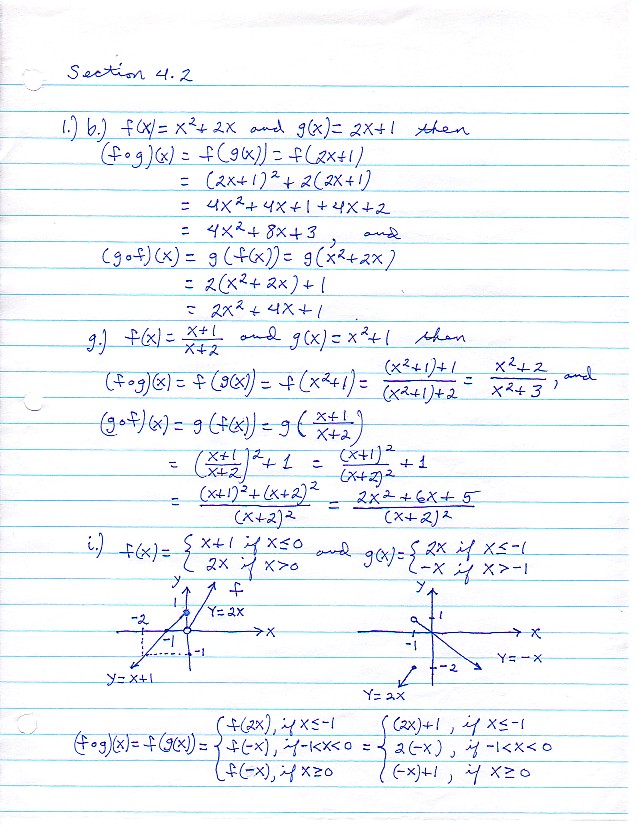 Section 4.2
1.) b.) f(x) = x² + 2x and g(x) = 2x+1 then
(f∘g)(x) = f(g(x)) = f(2x+1)
= (2x+1)² + 2(2x+1)
= 4x² + 4x + 1 + 4x + 2
= 4x² + 8x + 3, and
(g∘f)(x) = g(f(x)) = g(x²+2x)
= 2(x² + 2x) + 1
= 2x² + 4x + 1
g.) f(x) = (x+1)/(x+2) and g(x) = x²+1 then
(f∘g)(x) = f(g(x)) = f(x²+1) = ((x²+1)+1)/((x²+1)+2) = (x²+2)/(x²+3), and
(g∘f)(x) = g(f(x)) = g((x+1)/(x+2))
= ((x+1)/(x+2))² + 1 = (x+1)²/(x+2)² + 1
= ((x+1)²+(x+2)²)/(x+2)² = (2x²+6x+5)/(x+2)²
i.) f(x) = { x+1 if x≤0 and g(x) = { 2x if x≤-1
2x if x>0 -x if x>-1
y f
1 y=2x
-2 -1 x
-1
y=x+1
y
1
-1 x
-2 y=-x
y=2x
(f∘g)(x) = f(g(x)) = { f(2x), if x≤-1 = { (2x)+1, if x≤-1
f(-x), if -1<x<0 2(-x), if -1<x<0
f(-x), if x≥0 (-x)+1, if x≥0